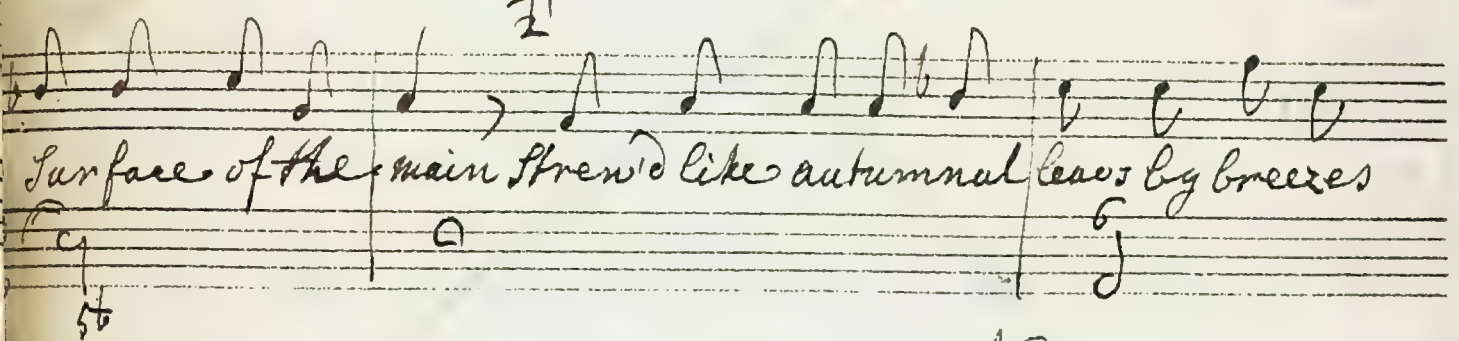 Surface of the main Strew'd like autumnal leavs by breezes
6
5b